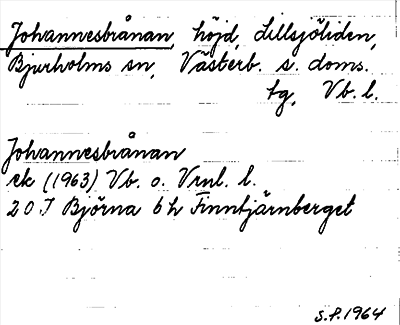 Johannesbrånan, höjd, Lillsjöliden,
Bjurholms sn, Västerb. s. doms.
tg, Vb. l.
Johannesbrånan
ek (1963) Vb. o. Vrnl. l.
20 J Björna 6 h Finntjärnberget
S.P. 1964